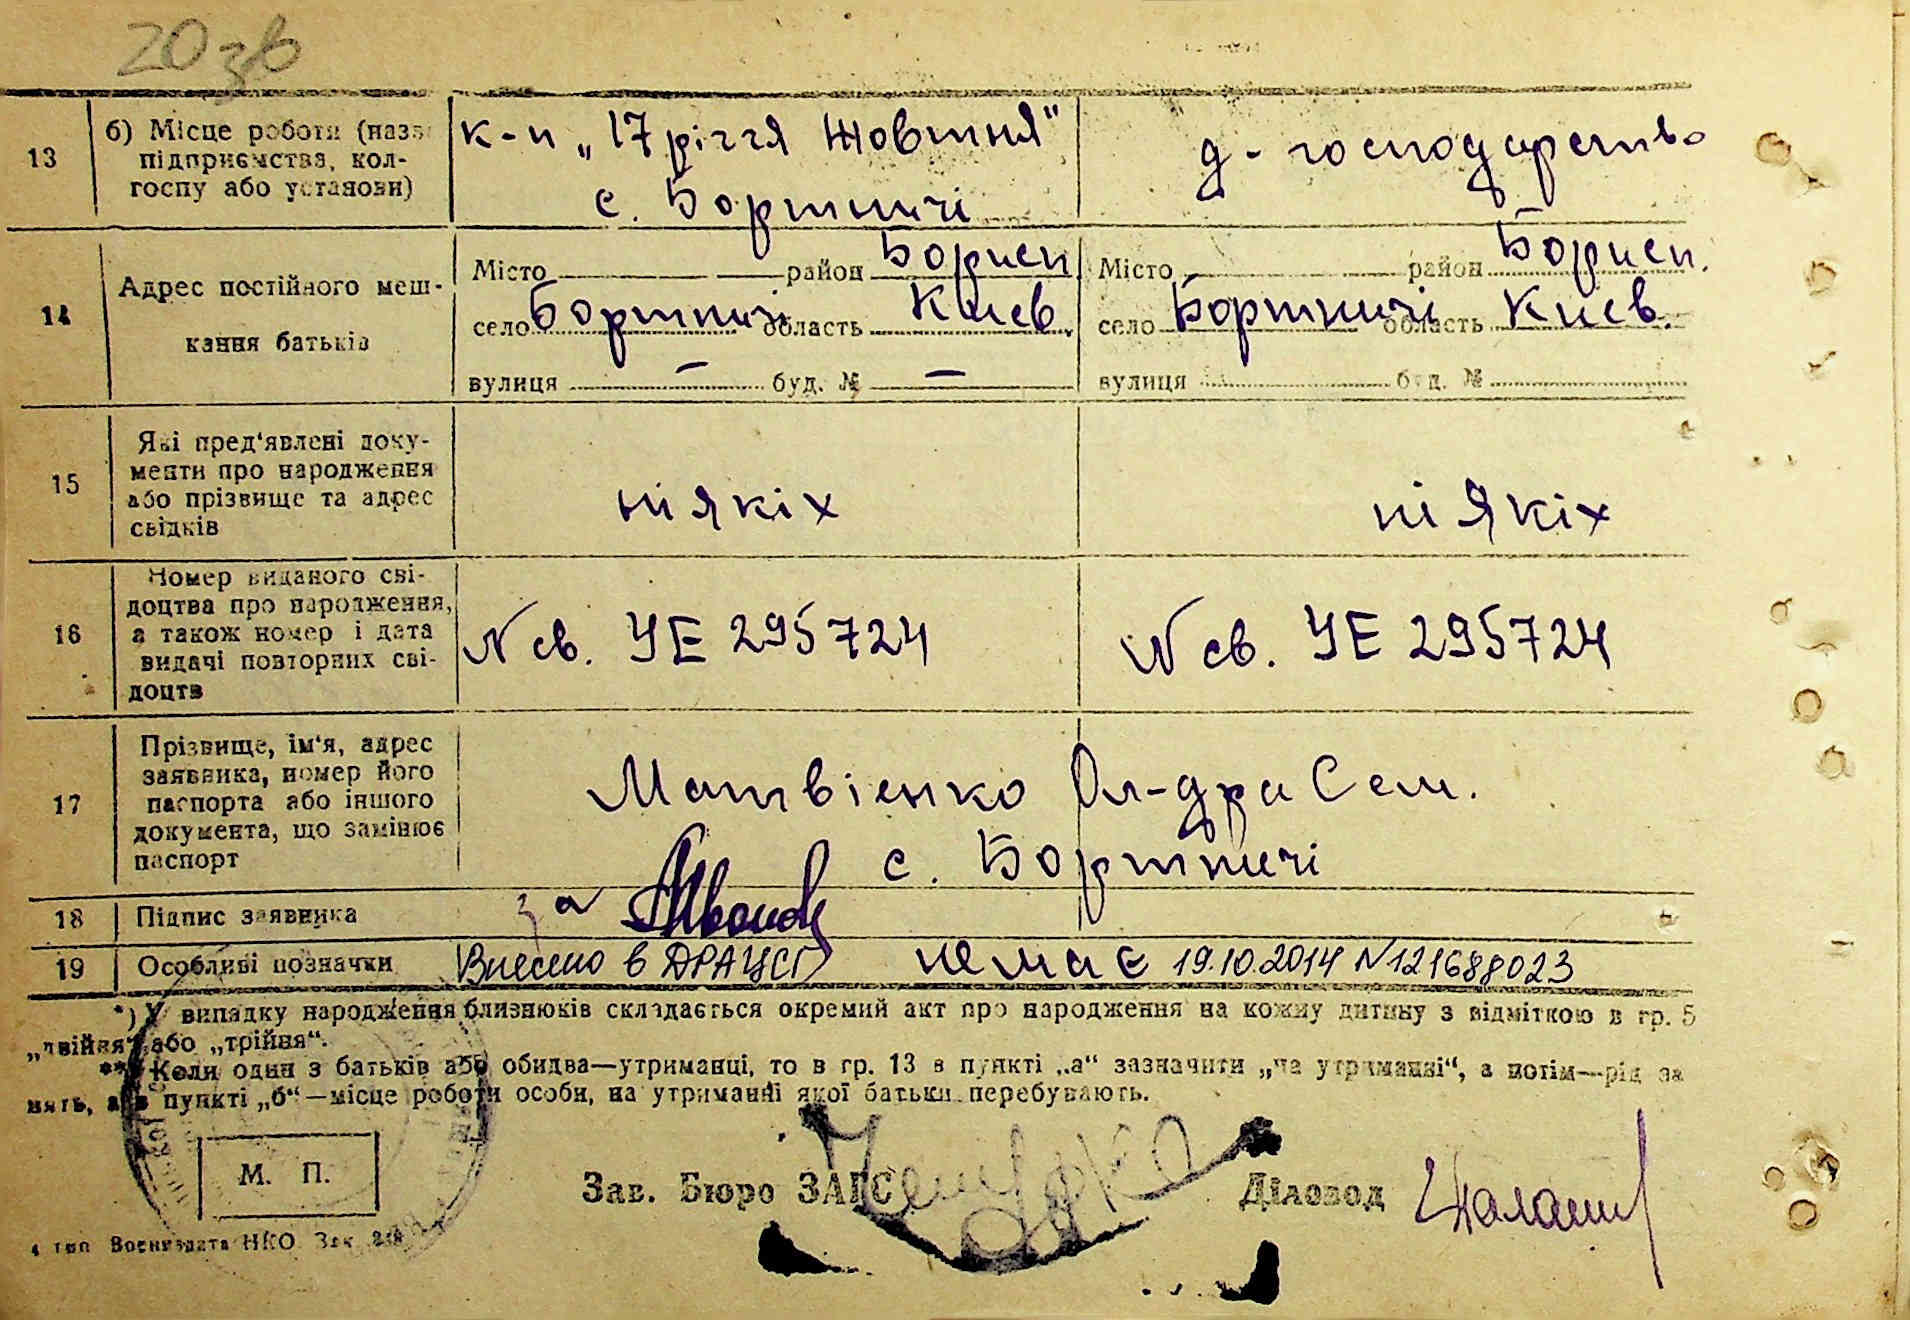 20 зв
13
б) Місце роботи (назв
підприємства, кол-
госпу або установи)
к-п „17 річчя Жовтня"
с. Бортничі
д-господарство
14
Адрес постійного меш-
кання батьків
Місто район Борисп
село Бортничі область Києв.
вулиця — буд. № —
Місто район Борисп.
село Бортничі область Києв.
вулиця буд. №
15
Які пред'явлені доку-
менти про народження
або прізвище та адрес
свідків
ніякіх
ніякіх
16
Номер виданого сві-
доцтва про народження,
а також номер і дата
видачі повторних сві-
доцтв
N св. УЕ 295724
N св. УЕ 295724
17
Прізвище, ім'я, адрес
заявника, номер його
паспорта або іншого
документа, що замінює
паспорт
Матвієнко Ол-дра Сем.
с. Бортничі
18
Підпис заявника
за
19
Особливі позначки
Внесено в ДРАЦСГ немає 19.10.2014 N121688023
*) У випадку народження близнюків складається окремий акт про народження на кожну дитину з відміткою в гр. 5
„двійня" або „трійня".
**) Коли один з батьків або обидва—утриманці, то в гр. 13 в пункті „а" зазначити „на утриманні", а потім—рід за
нять, а в пункті „б"—місце роботи особи, на утриманні якої батьки перебувають.
М. П.
Зав. Бюро ЗАГС
Діловод
4 тип Воениздата НКО Зак.